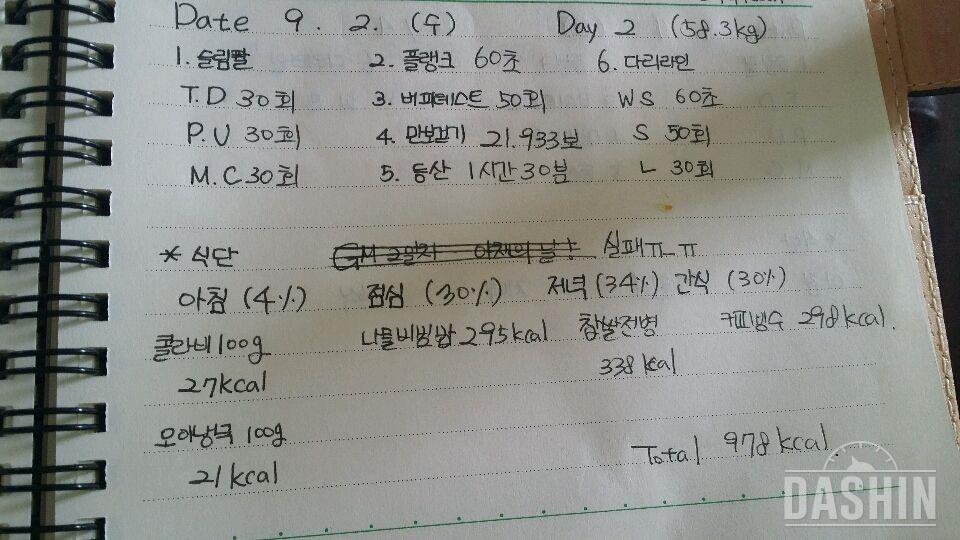 Date 9. 2. (수) Day 2 (58.3kg)
1. 슬림팔 2. 플랭크 60초 6. 다리라인
T.D 30회 3. 버피테스트 50회 WS 60초
P.U 30회 4. 만보걷기 21.933보 S 50회
M.C 30회 5. 등산 1시간30분 L 30회
* 식단 GM 2일차 야채의 날! 실패ㅠ_ㅠ
아침 (4%) 점심 (30%) 저녁 (34%) 간식 (30%)
콜라비 100g 나물비빔밥 295kcal 찹쌀전병 커피빙수 298kcal.
27kcal 338kcal
오이냉국 100g
21kcal Total 978kcal
DASHIN